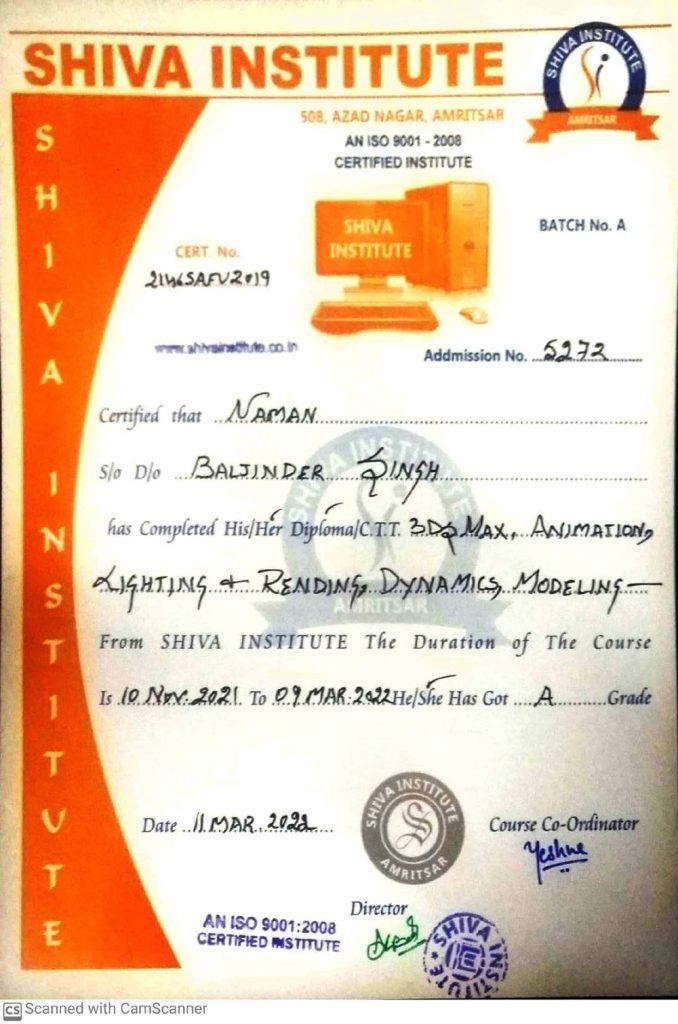 SHIVA INSTITUTE
SHIVA INSTITUTE
AMRITSAR
508, AZAD NAGAR, AMRITSAR
AN ISO 9001 - 2008
CERTIFIED INSTITUTE
SHIVA INSTITUTE
SHIVA
INSTITUTE
BATCH No. A
CERT. No.
2146SAFV2019
www.shivainstitute.co.in
Addmission No. 5272
Certified that NAMAN
S/o D/o BALJINDER SINGH
SHIVA INSTITUTE
has Completed His/Her Diploma/C.T.T. 3Ds MAX, ANIMATION,
LIGHTING & RENDING, DYNAMICS, MODELING
AMRITSAR
From SHIVA INSTITUTE The Duration of The Course
Is 10 Nov. 2021 To 09 MAR. 2022 He/She Has Got A Grade
Date 11 MAR. 2022
SHIVA INSTITUTE
AMRITSAR
Course Co-Ordinator
Director
AN ISO 9001:2008
CERTIFIED INSTITUTE
SHIVA INSTITUTE
CS Scanned with CamScanner